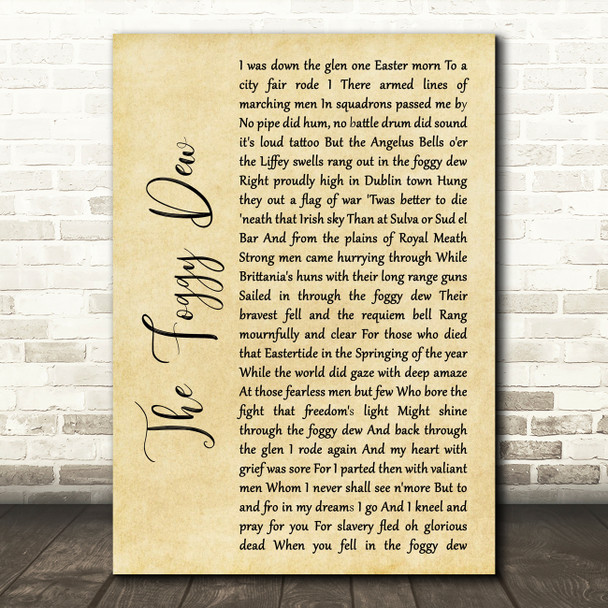 The Foggy Dew
I was down the glen one Easter morn To a
city fair rode I There armed lines of
marching men In squadrons passed me by
No pipe did hum, no battle drum did sound
it's loud tattoo But the Angelus Bells o'er
the Liffey swells rang out in the foggy dew
Right proudly high in Dublin town Hung
they out a flag of war 'Twas better to die
'neath that Irish sky Than at Sulva or Sud el
Bar And from the plains of Royal Meath
Strong men came hurrying through While
Brittania's huns with their long range guns
Sailed in through the foggy dew Their
bravest fell and the requiem bell Rang
mournfully and clear For those who died
that Eastertide in the Springing of the year
While the world did gaze with deep amaze
At those fearless men but few Who bore the
fight that freedom's light Might shine
through the foggy dew And back through
the glen I rode again And my heart with
grief was sore For I parted then with valiant
men Whom I never shall see n'more But to
and fro in my dreams I go And I kneel and
pray for you For slavery fled oh glorious
dead When you fell in the foggy dew